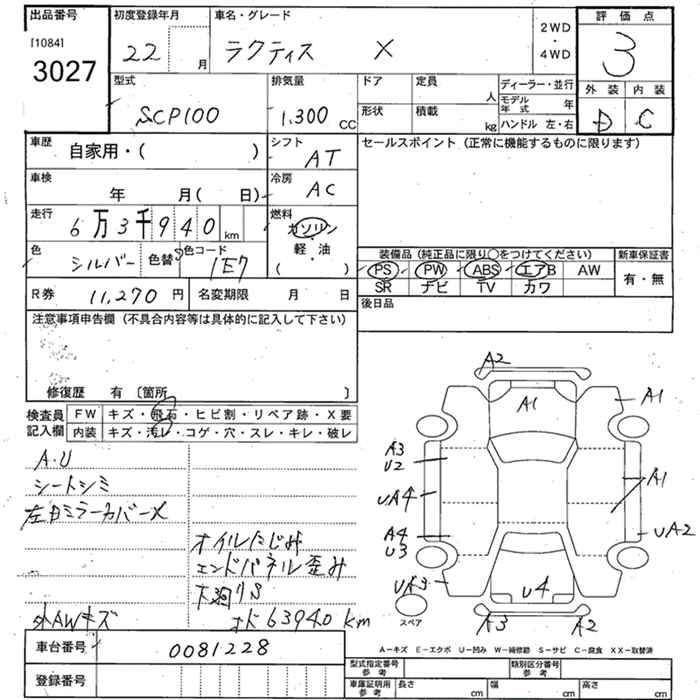 出品番号 初度登録年月 車名・グレード 2WD・4WD 評価点
[1084]
3027
22 月 ラクティス X 3
型式 排気量 ドア 定員 人 ディーラー・並行 外装 内装
SCP100 1,300 CC 形状 積載 kg モデル年式 年 D C
ハンドル 左・右
車歴 自家用・( ) シフト AT セールスポイント (正常に機能するものに限ります)
車検 年 月(日) 冷房 AC
走行 6万3千940km 燃料 ガソリン・軽・油 ( )
色 シルバー 色替 色コード 1E7
装備品 (純正品に限り○をつけてください) 新車保証書
PS PW ABS エアB AW 有・無
SR ナビ TV カワ
R券 11,270 円 名変期限 月 日 後日品
注意事項申告欄 (不具合内容等は具体的に記入して下さい)
修復歴 有 〔箇所 〕
検査員記入欄 FW キズ・飛石・ヒビ割・リペア跡・X要
内装 キズ・汚レ・コゲ・穴・スレ・キレ・破レ
A.U
シートシミ
左Dミラーカバーメ
オイルにじみ
エンドパネル歪み
下廻りS
外AWキズ オド63940km
A2
A1 A1
A3
U2
UA4 A1
A4
U3 UA2
UA3 U4
スペア A3 A2
A－キズ E－エクボ U－凹み W－補修跡 S－サビ C－腐食 XX－取替済
車台番号 0081228
登録番号
型式指定番号 参考 類別区分番号 参考
車庫証明用 参考 長さ cm 幅 cm 高さ cm